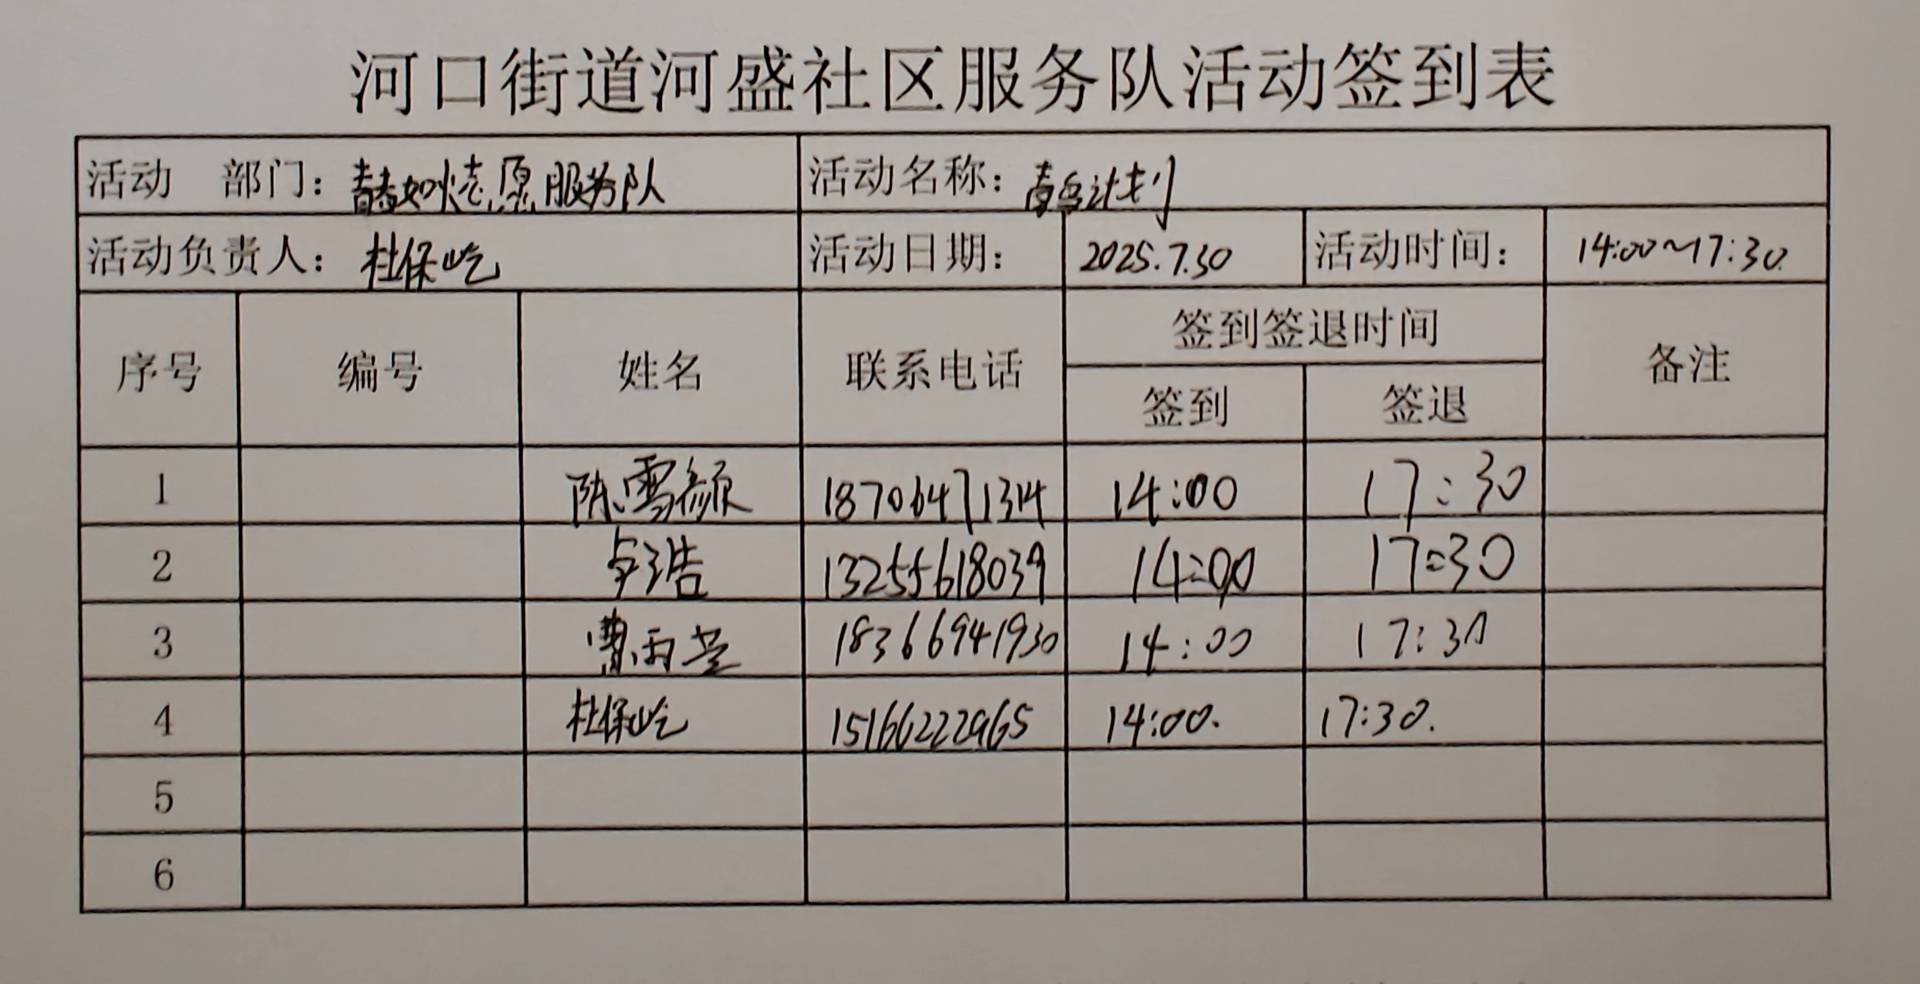 河口街道河盛社区服务队活动签到表
活动 部门：志愿服务队 活动名称：青鸟计划
活动负责人：杜保屹 活动日期： 2025.7.30 活动时间： 14:00~17:30.
序号 编号 姓名 联系电话 签到签退时间 备注
签到 签退
1 陈雪颜 18706471314 14:00 17:30
2 浩 13255618039 14:00 17:30
3 曹雨萱 18366941930 14:00 17:30
4 杜保屹 15166222965 14:00. 17:30.
5
6